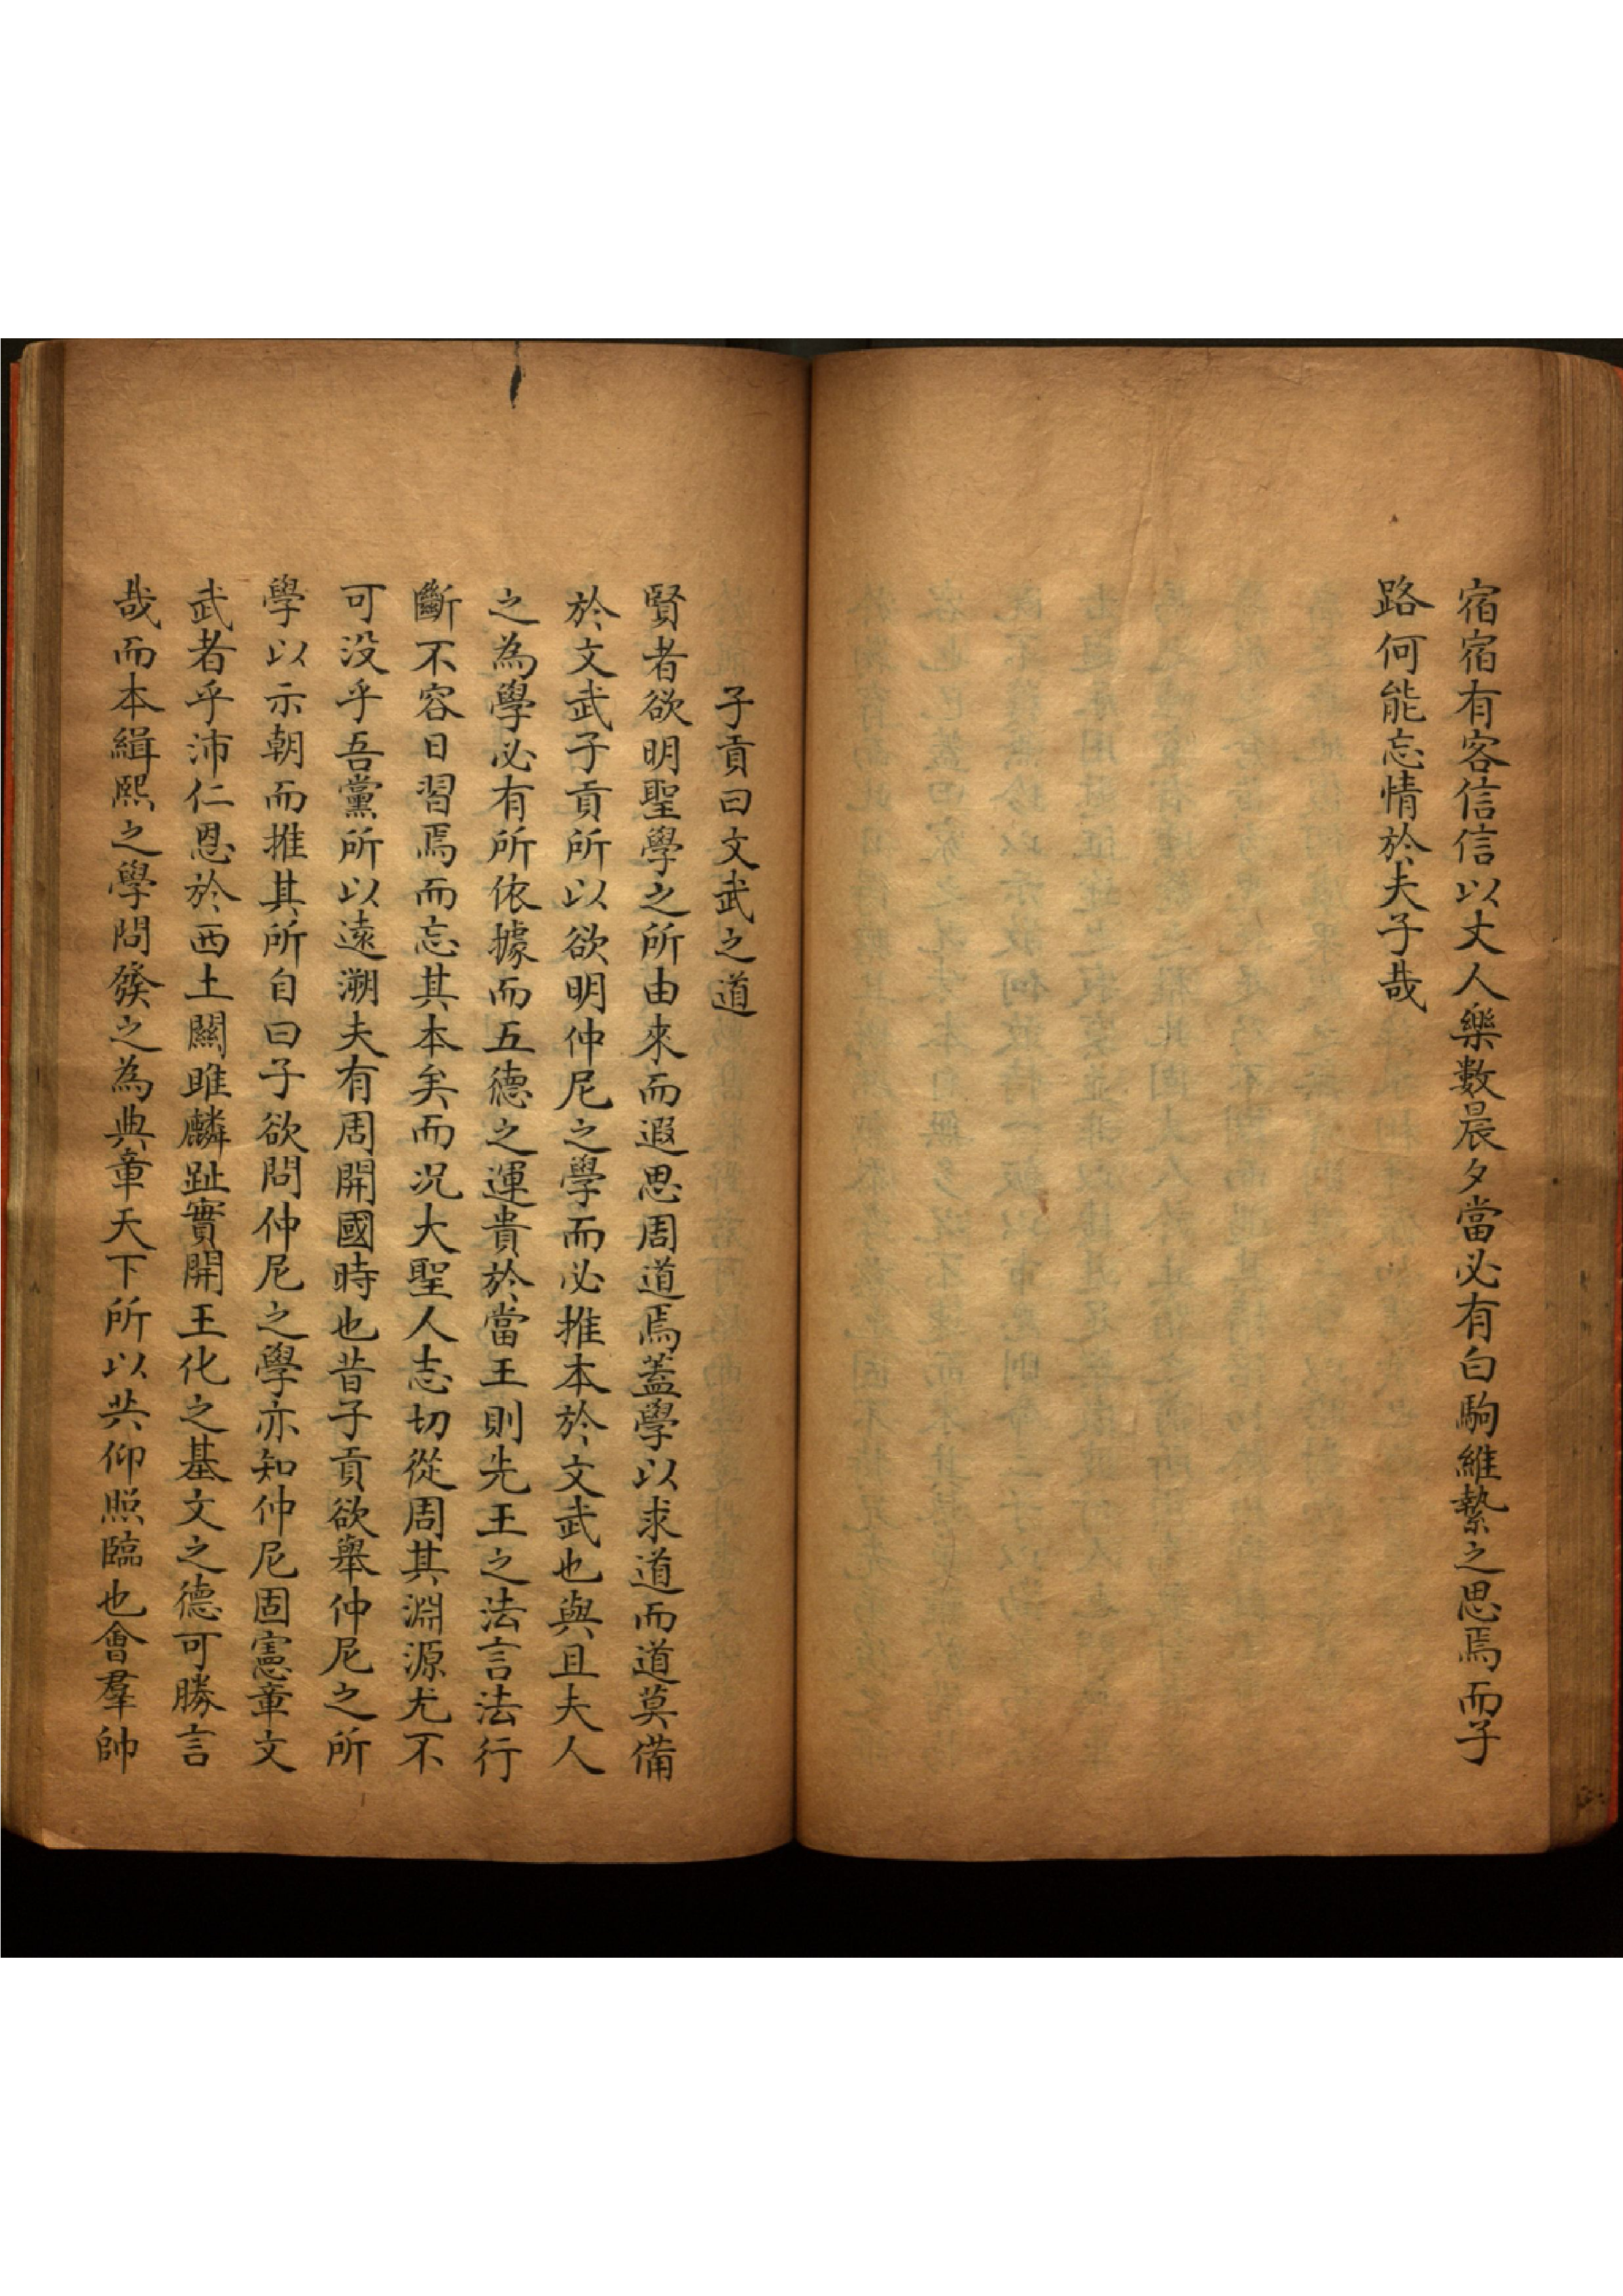 宿宿有客信信以丈人樂數晨夕當必有白駒維縶之思焉而子
路何能忘情於夫子哉
子貢曰文武之道
賢者欲明聖學之所由來而遐思周道焉蓋學以求道而道莫備
於文武子貢所以欲明仲尼之學而必推本於文武也與且夫人
之為學必有所依據而五德之運貴於當王則先王之法言法行
斷不容日習焉而忘其本矣而况大聖人志切從周其淵源尤不
可没乎吾黨所以遠溯夫有周開國時也昔子貢欲舉仲尼之所
學以示朝而推其所自曰子欲問仲尼之學亦知仲尼固憲章文
武者乎沛仁恩於西土關雎麟趾實開王化之基文之德可勝言
哉而本緝熙之學問發之為典章天下所以共仰照臨也會羣帥